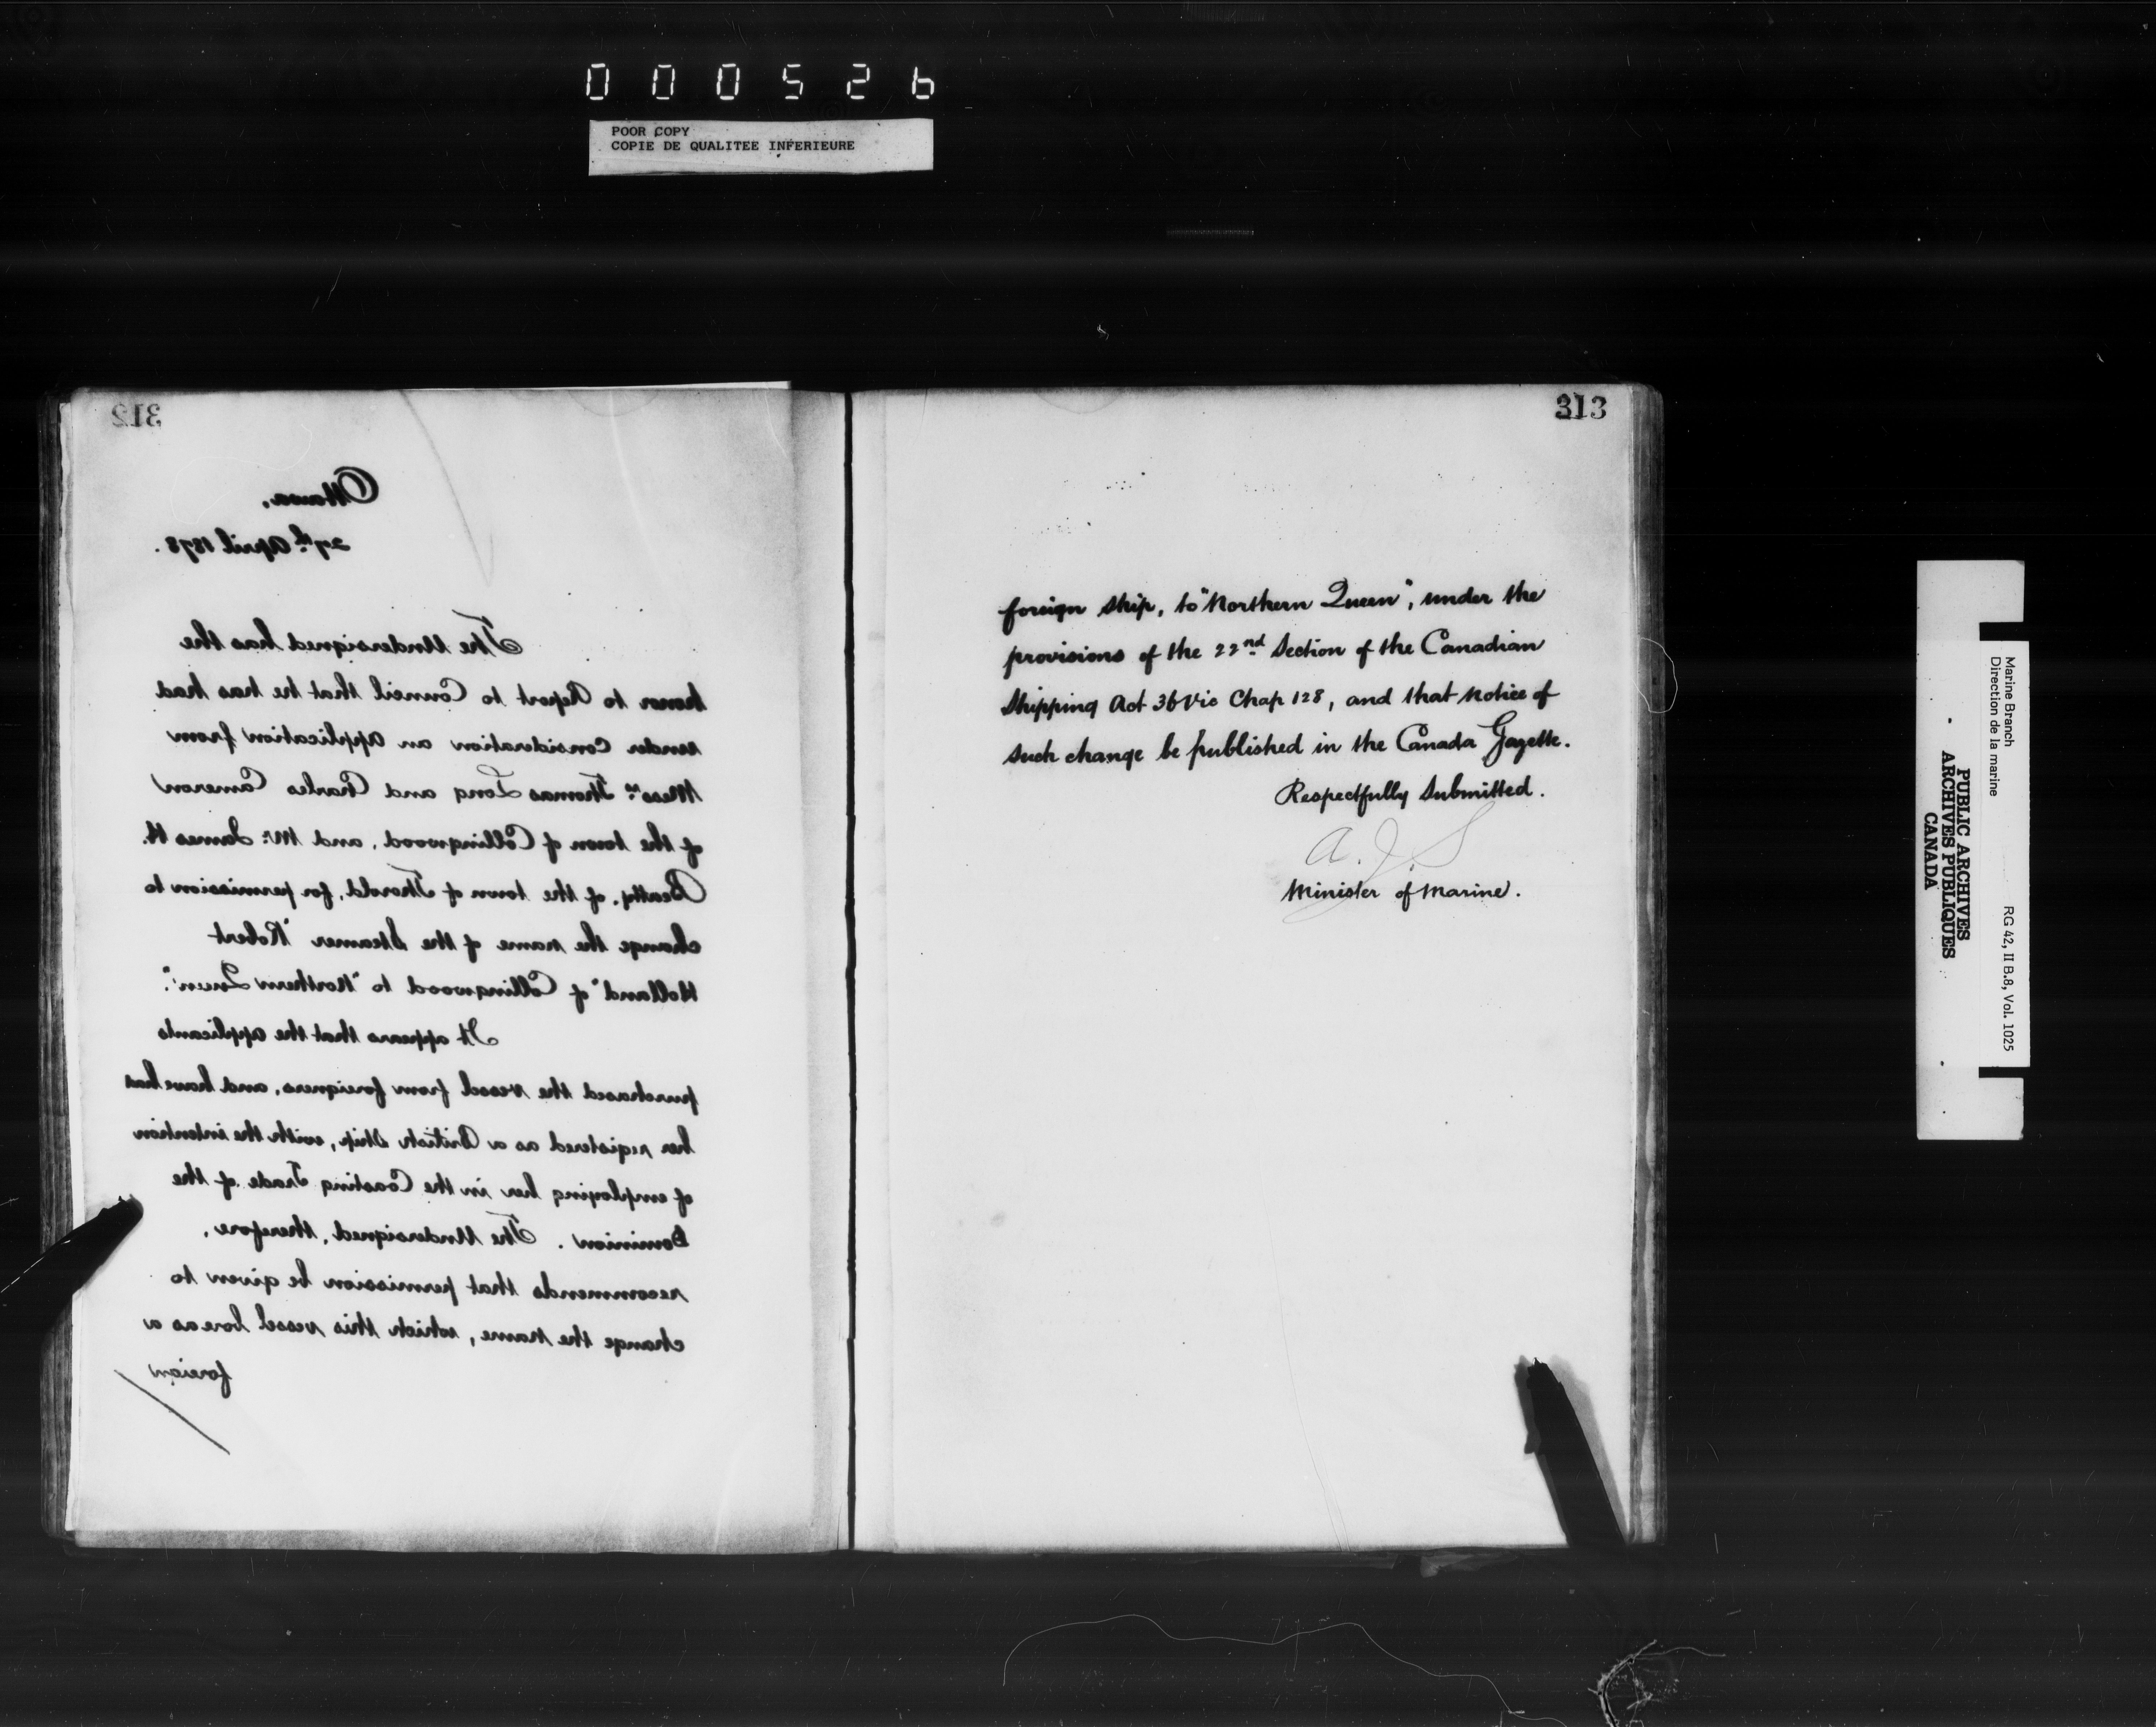 000526
POOR COPY
COPIE DE QUALITEE INFERIEURE
312
Ottawa,
27th April 1878.
The Undersigned has the
honor to Report to Council that he has had
under consideration an application from
Messrs. Thomas Long and Charles Cameron
of the town of Collingwood, and Mr. James H.
Beatty, of the town of Thorold, for permission to
change the name of the Steamer "Robert
Holland" of Collingwood to "Northern Queen".
It appears that the applicants
purchased the vessel from foreigners, and have had
her registered as a British Ship, with the intention
of employing her in the Coasting Trade of the
Dominion. The Undersigned, therefore,
recommends that permission be given to
change the name, which this vessel bore as a
foreign
313
foreign ship, to "Northern Queen", under the
provisions of the 22nd Section of the Canadian
Shipping Act 36 Vic Chap 128, and that notice of
such change be published in the Canada Gazette.
Respectfully Submitted.
A. J. S
Minister of Marine.
Marine Branch
Direction de la marine
RG 42, II B.8, Vol. 1025
PUBLIC ARCHIVES
ARCHIVES PUBLIQUES
CANADA